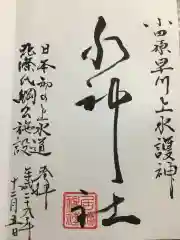 小田原早川上水護神
水神社
日本初の上水道
北條氏綱公施設
参拝
平成二十九年
十二月五日